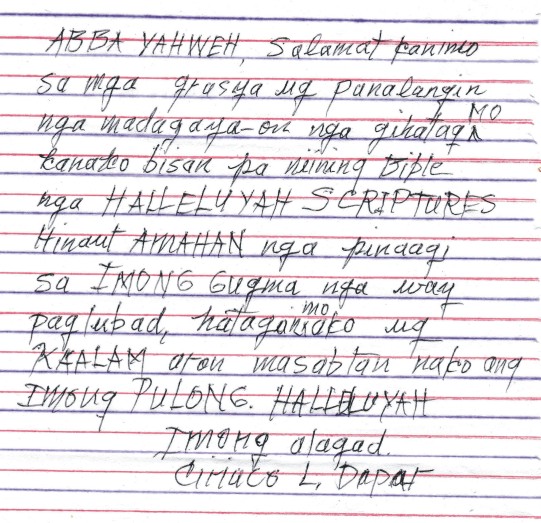 ABBA YAHWEH, Salamat kanimo
sa mga grasya ug panalangin
nga madagaya-on nga gihatag MO
kanako bisan pa niining Bible
nga HALLELUYAH SCRIPTURES
Hinaut AMAHAN nga pinaagi
sa IMONG Gugma nga way
paglubad, hatagan mo ako ug
KAALAM aron masabtan nako ang
Imong PULONG. HALLELUYAH
Imong alagad.
Ciriaco L. Dapar